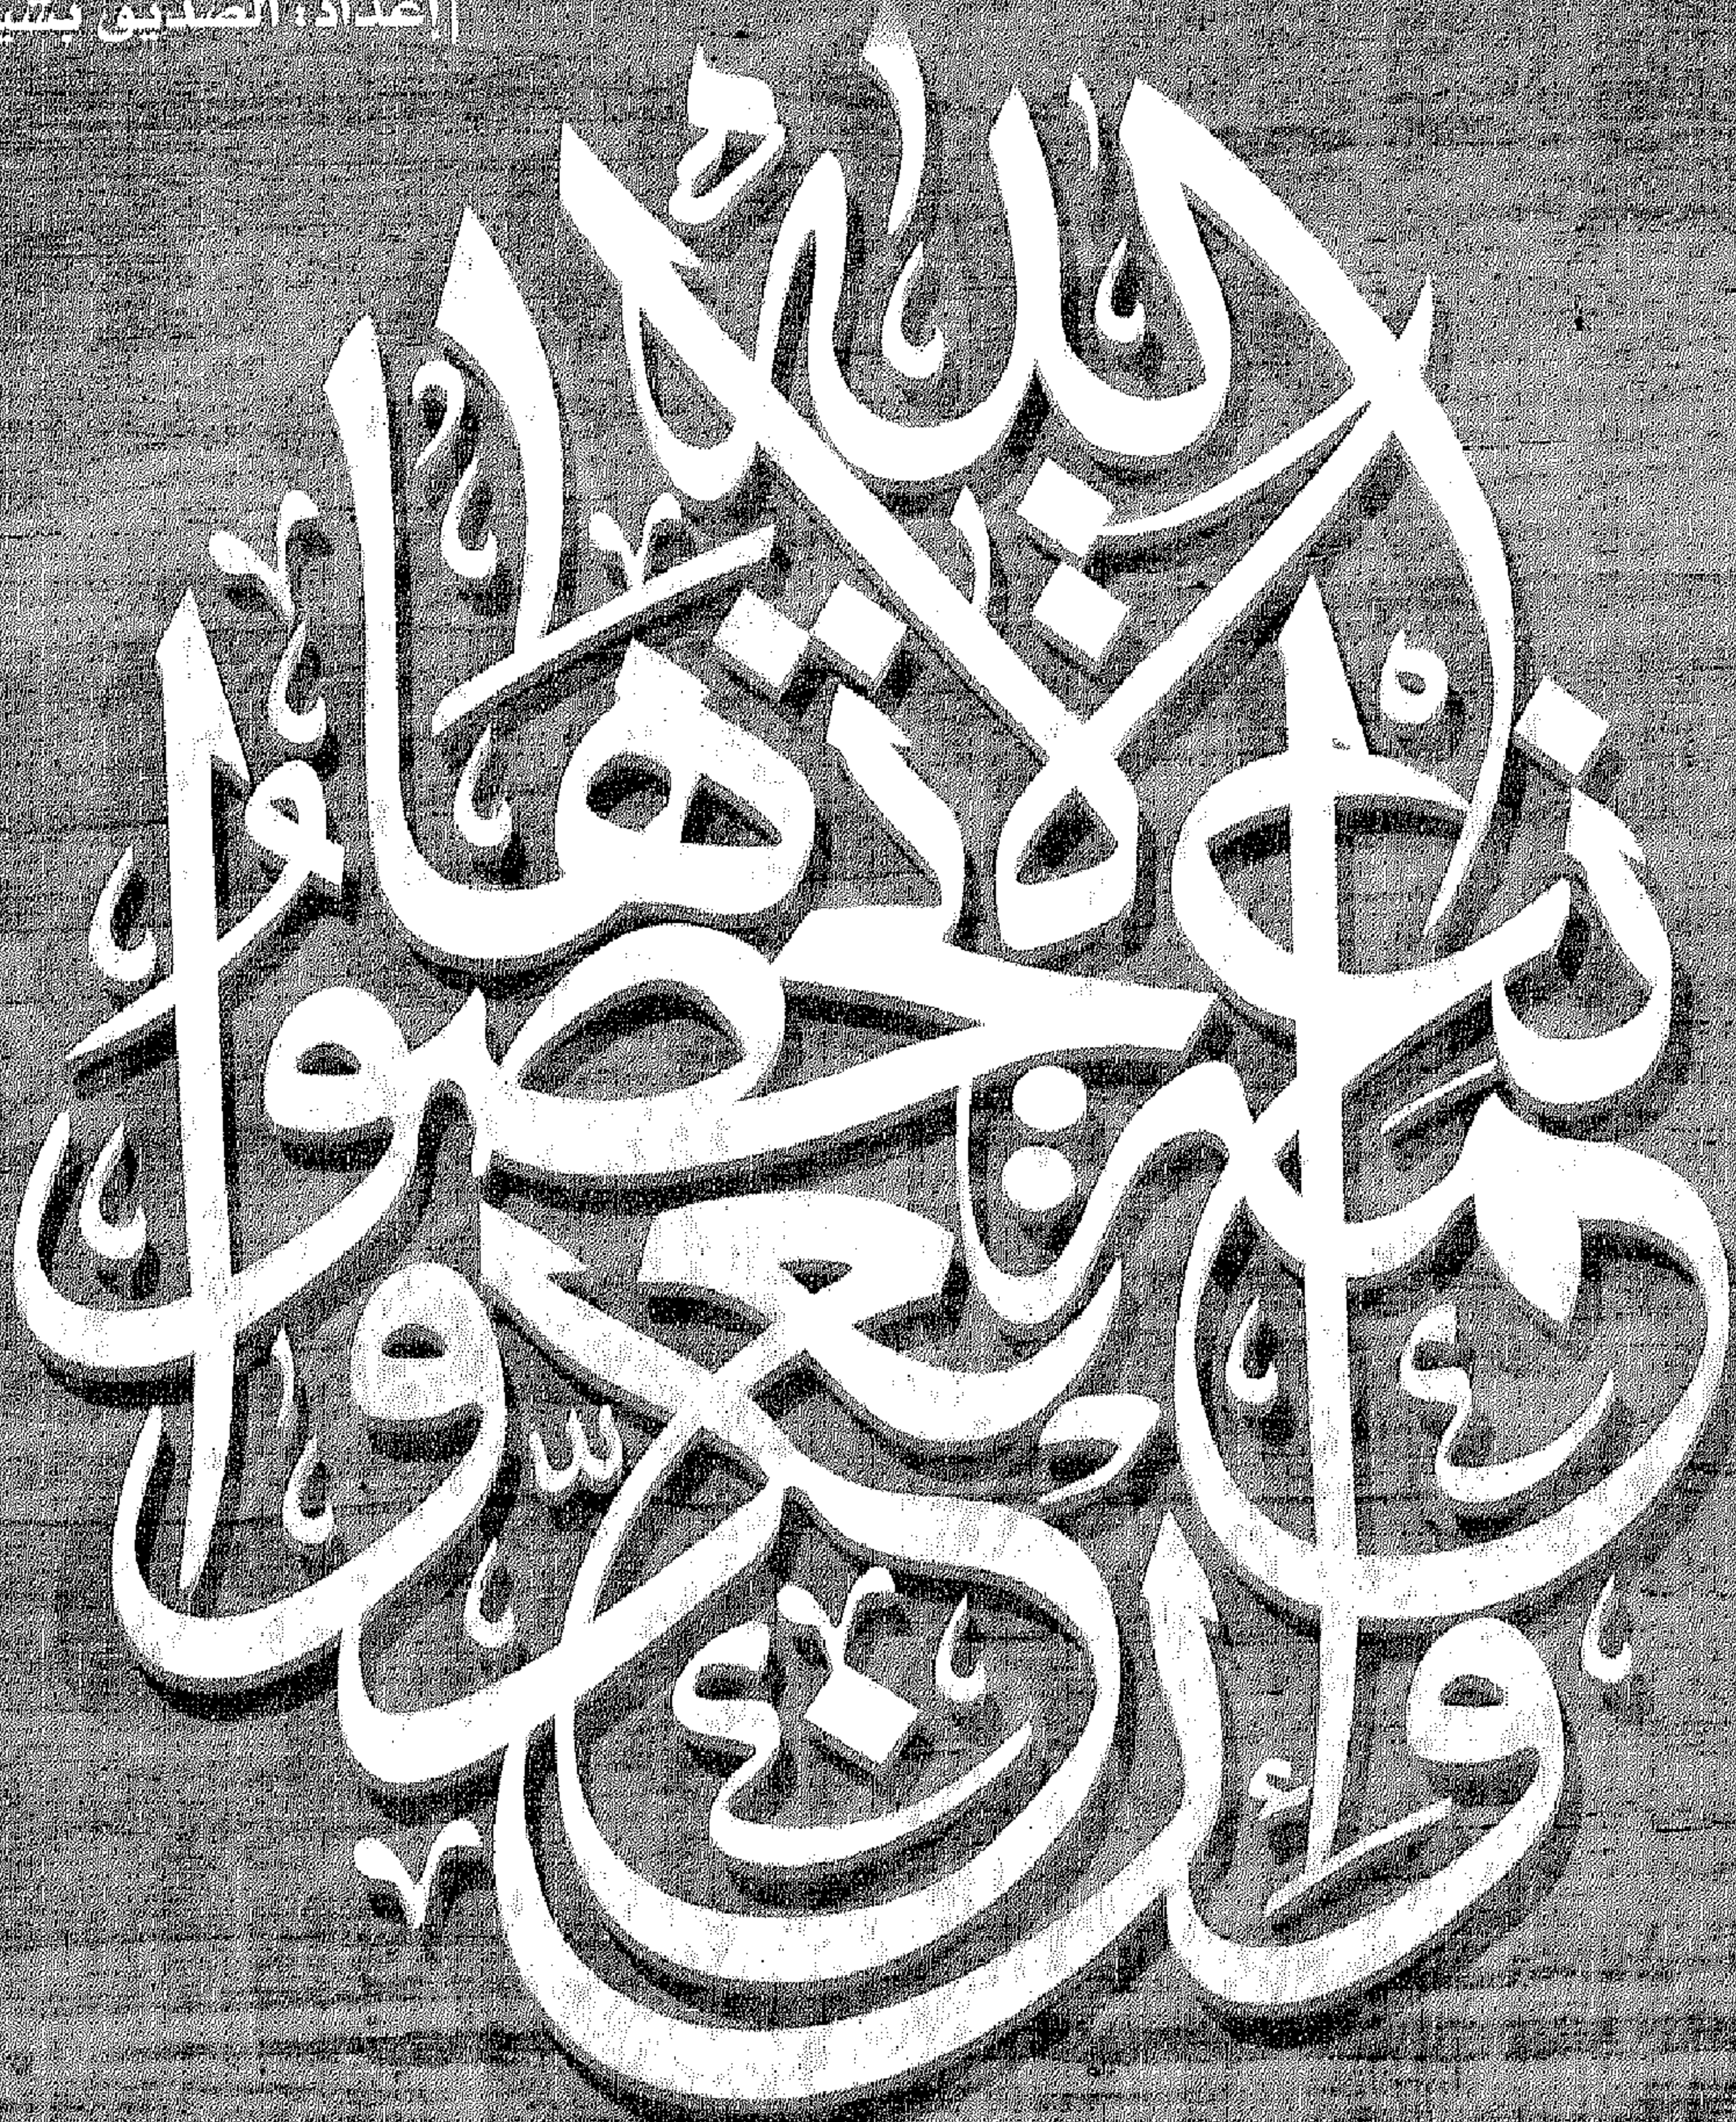 إعداد: الصديق بشير
وإن تعدوا نعمة الله لا تحصوها